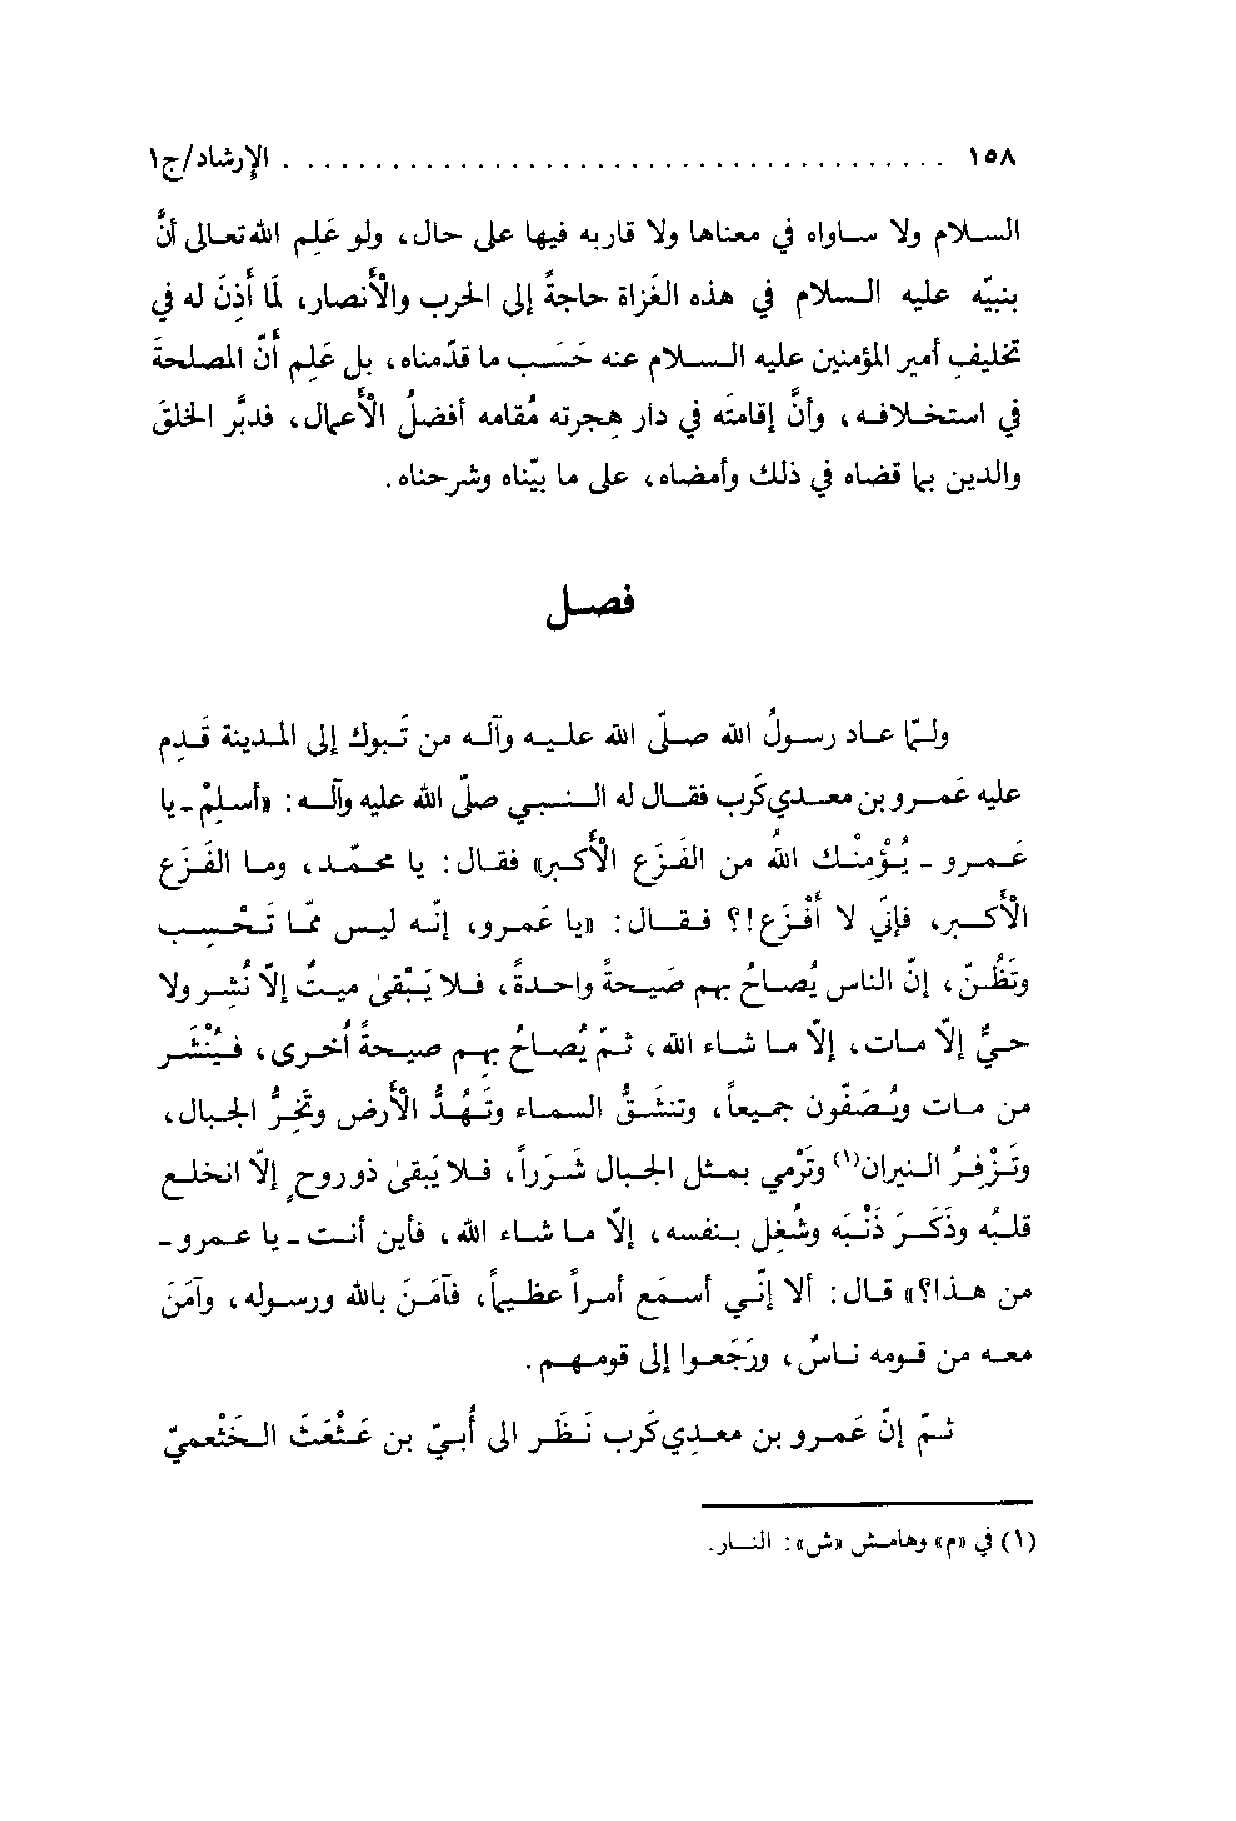 ١٥٨ . . . . . . . . . . . . . . . . . . . . . . . . . . . . . . . . . . . . . . . الإرشاد/ج١
السلام ولا ساواه في معناها ولا قاربه فيها على حال، ولو عَلِم الله تعالى أنَّ
بنبيّه عليه السلام في هذه الغَزاة حاجةً إلى الحرب والأنصار، لَما أذِنَ له في
تخليف أمير المؤمنين عليه السلام عنه حَسَب ما قدّمناه، بل عَلِم أنّ المصلحةَ
في استخلافه، وأنّ إقامتَه في دار هِجرته مُقامه أفضلُ الأعمال، فدبَّر الخلقَ
والدين بما قضاه في ذلك وأمضاه، على ما بيّناه وشرحناه.
فصل
ولمّا عاد رسولُ الله صلّى الله عليه وآله من تَبوك إلى المدينة قَدِم
عليه عَمرو بن معدي كَرِب فقال له النبي صلّى الله عليه وآله: «أسلِمْ - يا
عَمرو - يُؤمِنْك اللهُ من الفَزَع الأكبر» فقال: يا محمّد، وما الفَزَع
الأكبر، فإنّي لا أَفْزَع!؟ فقال: «يا عَمرو، إنّه ليس ممّا تَحْسِب
وتَظُنّ، إنّ الناس يُصاحُ بهم صَيحةً واحدةً، فلا يَبْقىٰ ميتٌ إلّا نُشِر ولا
حيٌّ إلّا مات، إلّا ما شاء الله، ثمّ يُصاحُ بهِم صيحةً أُخرى، فيُنْشَر
من مات ويُصَفّون جميعاً، وتنشقُّ السماء وتُهَدُّ الأرض وتَخِرُّ الجبال،
وتَزْفِرُ النيران(١) وتَرْمي بمثل الجبال شَرَراً، فلا يَبقىٰ ذو روحٍ إلّا انخلع
قلبُه وذَكَرَ ذَنْبَه وشُغِل بنفسه، إلّا ما شاء الله، فأين أنت - يا عمرو -
من هذا؟» قال: ألا إنّي أسمَع أمراً عظيماً، فآمَنَ بالله ورسوله، وآمَنَ
معه من قومه ناسٌ، ورَجَعوا إلى قومهم.
ثمّ إنّ عَمرو بن معدِي كَرِب نَظَر الى أُبيّ بن عَثْعَث الخَثْعميّ
(١) في «م» وهامش «ش»: النار.